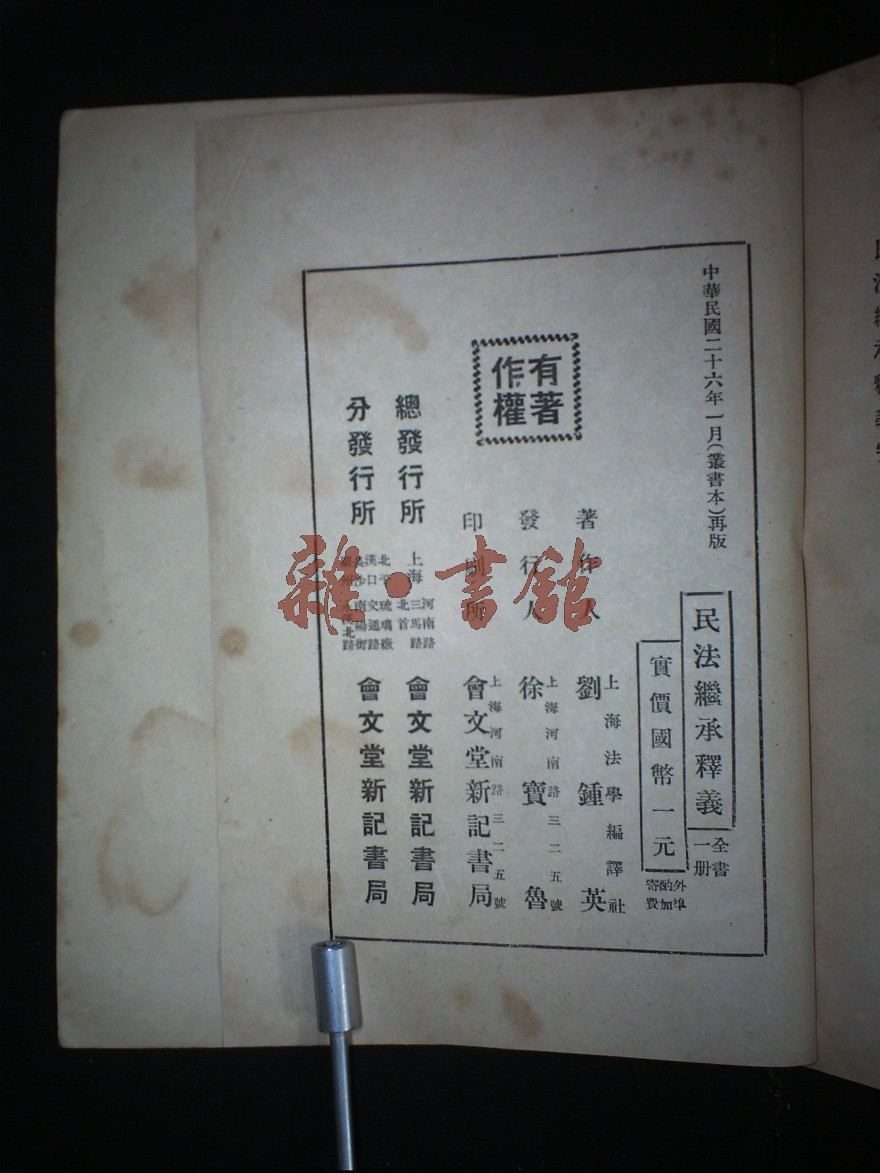 中華民國二十六年一月(叢書本)再版
民法繼承釋義
全書
一册
實價國幣一元
外埠
酌加
寄費
有著
作權
著作人
上海法學編譯社
劉鍾英
發行人
上海河南路三二五號
徐寶魯
印刷所
上海河南路三二五號
會文堂新記書局
總發行所
上海
河南路
三馬路
北首
會文堂新記書局
分發行所
北平
琉璃廠
漢口
交通路
長沙
南陽街
北路
會文堂新記書局
雜·書館
民法繼承釋義